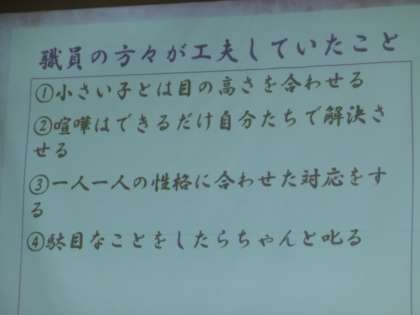 職員の方々が工夫していたこと
①小さい子とは目の高さを合わせる
②喧嘩はできるだけ自分たちで解決さ
せる
③一人一人の性格に合わせた対応をす
る
④駄目なことをしたらちゃんと叱る